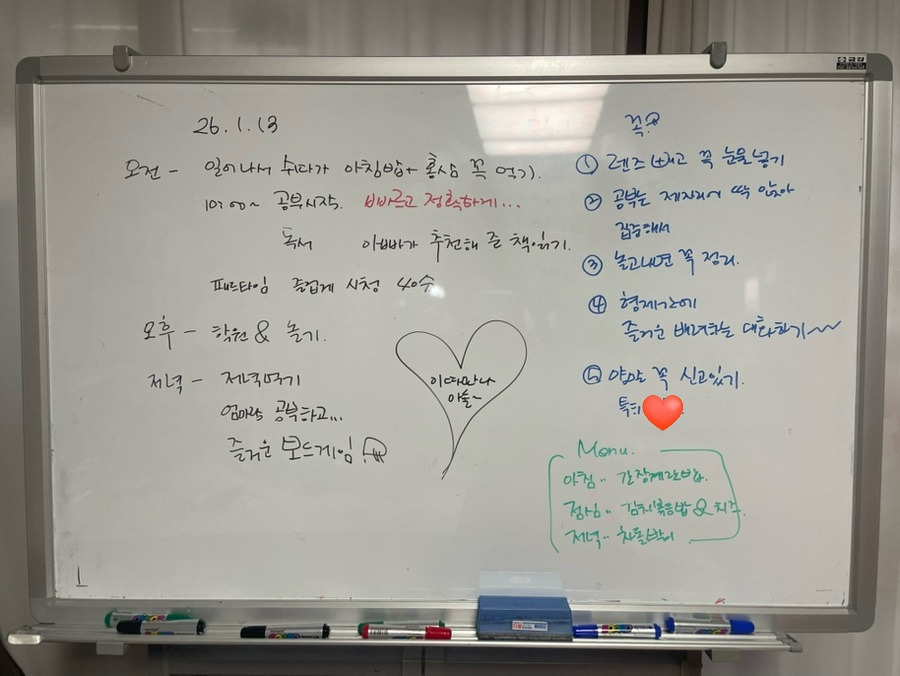 26.1.13
오전 - 일어나서 쉬다가 아침밥 + 홍삼 꼭 먹기.
10:00~ 공부시작. 빠르고 정확하게...
독서 아빠가 추천해 준 책읽기.
패드타임 즐겁게 시청 40수
오후 - 학원 & 놀기.
저녁 - 저녁먹기
엄마랑 공부하고...
즐거운 보드게임
이따만나
아들~
꼭!
① 렌즈 빼고 꼭 눈물넣기
② 공부는 제자리에 딱 앉아
집중해서
③ 놀고나면 꼭 정리.
④ 형제간에
즐거운 배려하는 대화하기~~
⑤ 양말 꼭 신고있기.
특히
Menu.
아침.. 간장계란밥.
점심.. 김치볶음밥 & 치즈.
저녁.. 차돌박이